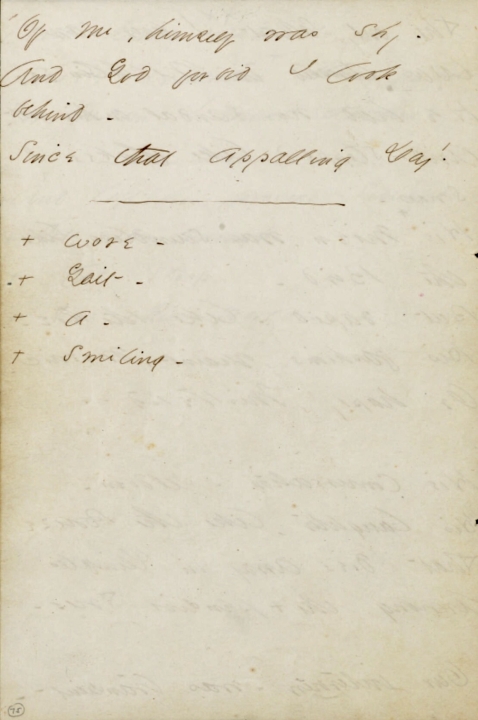 Of me, himself was shy.
And God forbid I look
behind -
Since that appalling Day!
+ wore -
+ Gait -
+ a -
+ Smiling -